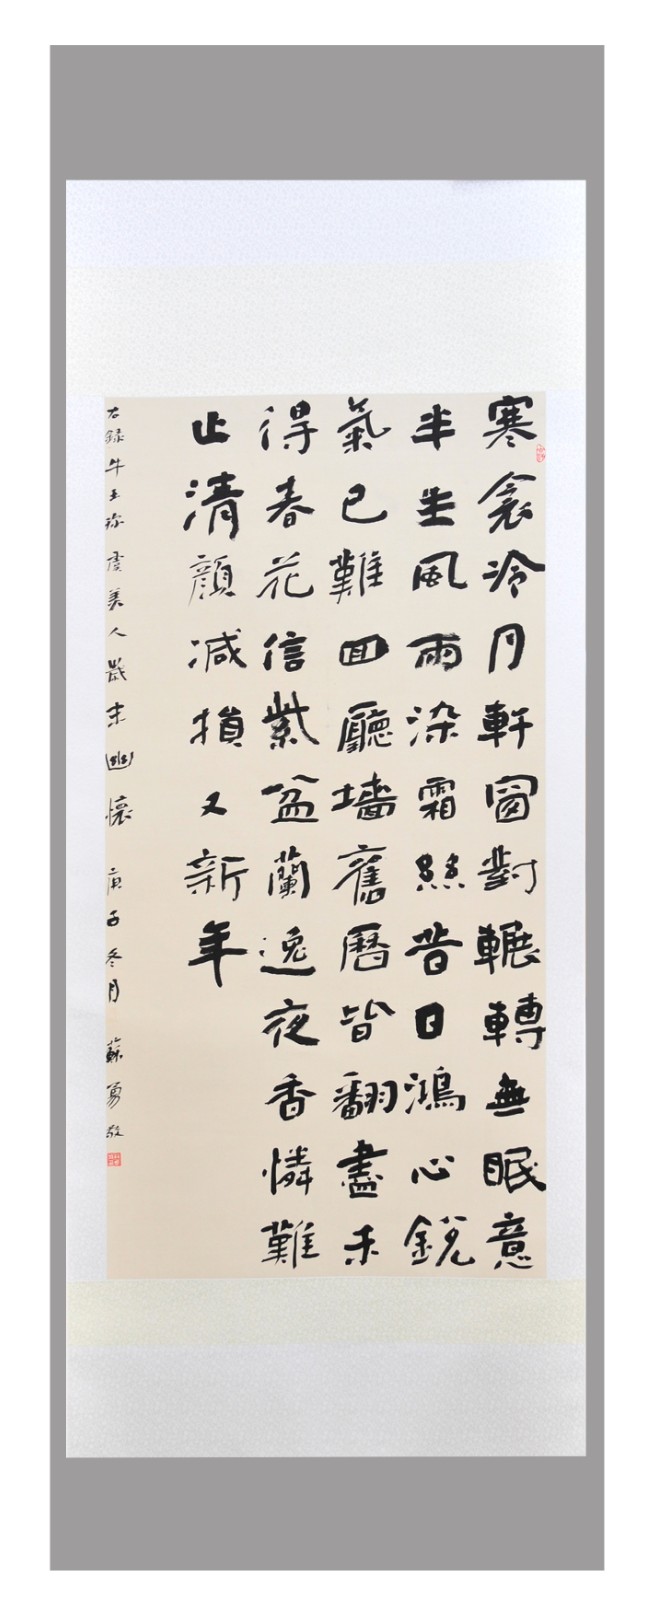 寒衾冷月軒窗對輾轉無眠意
半生風雨染霜絲昔日鴻心銳
氣已難回廳墻舊曆皆翻盡未
得春花信紫盆蘭逸夜香憐難
止清顏减損又新年
右錄牛玉珍虞美人歲末幽懷 庚子冬月 蘇勇敬